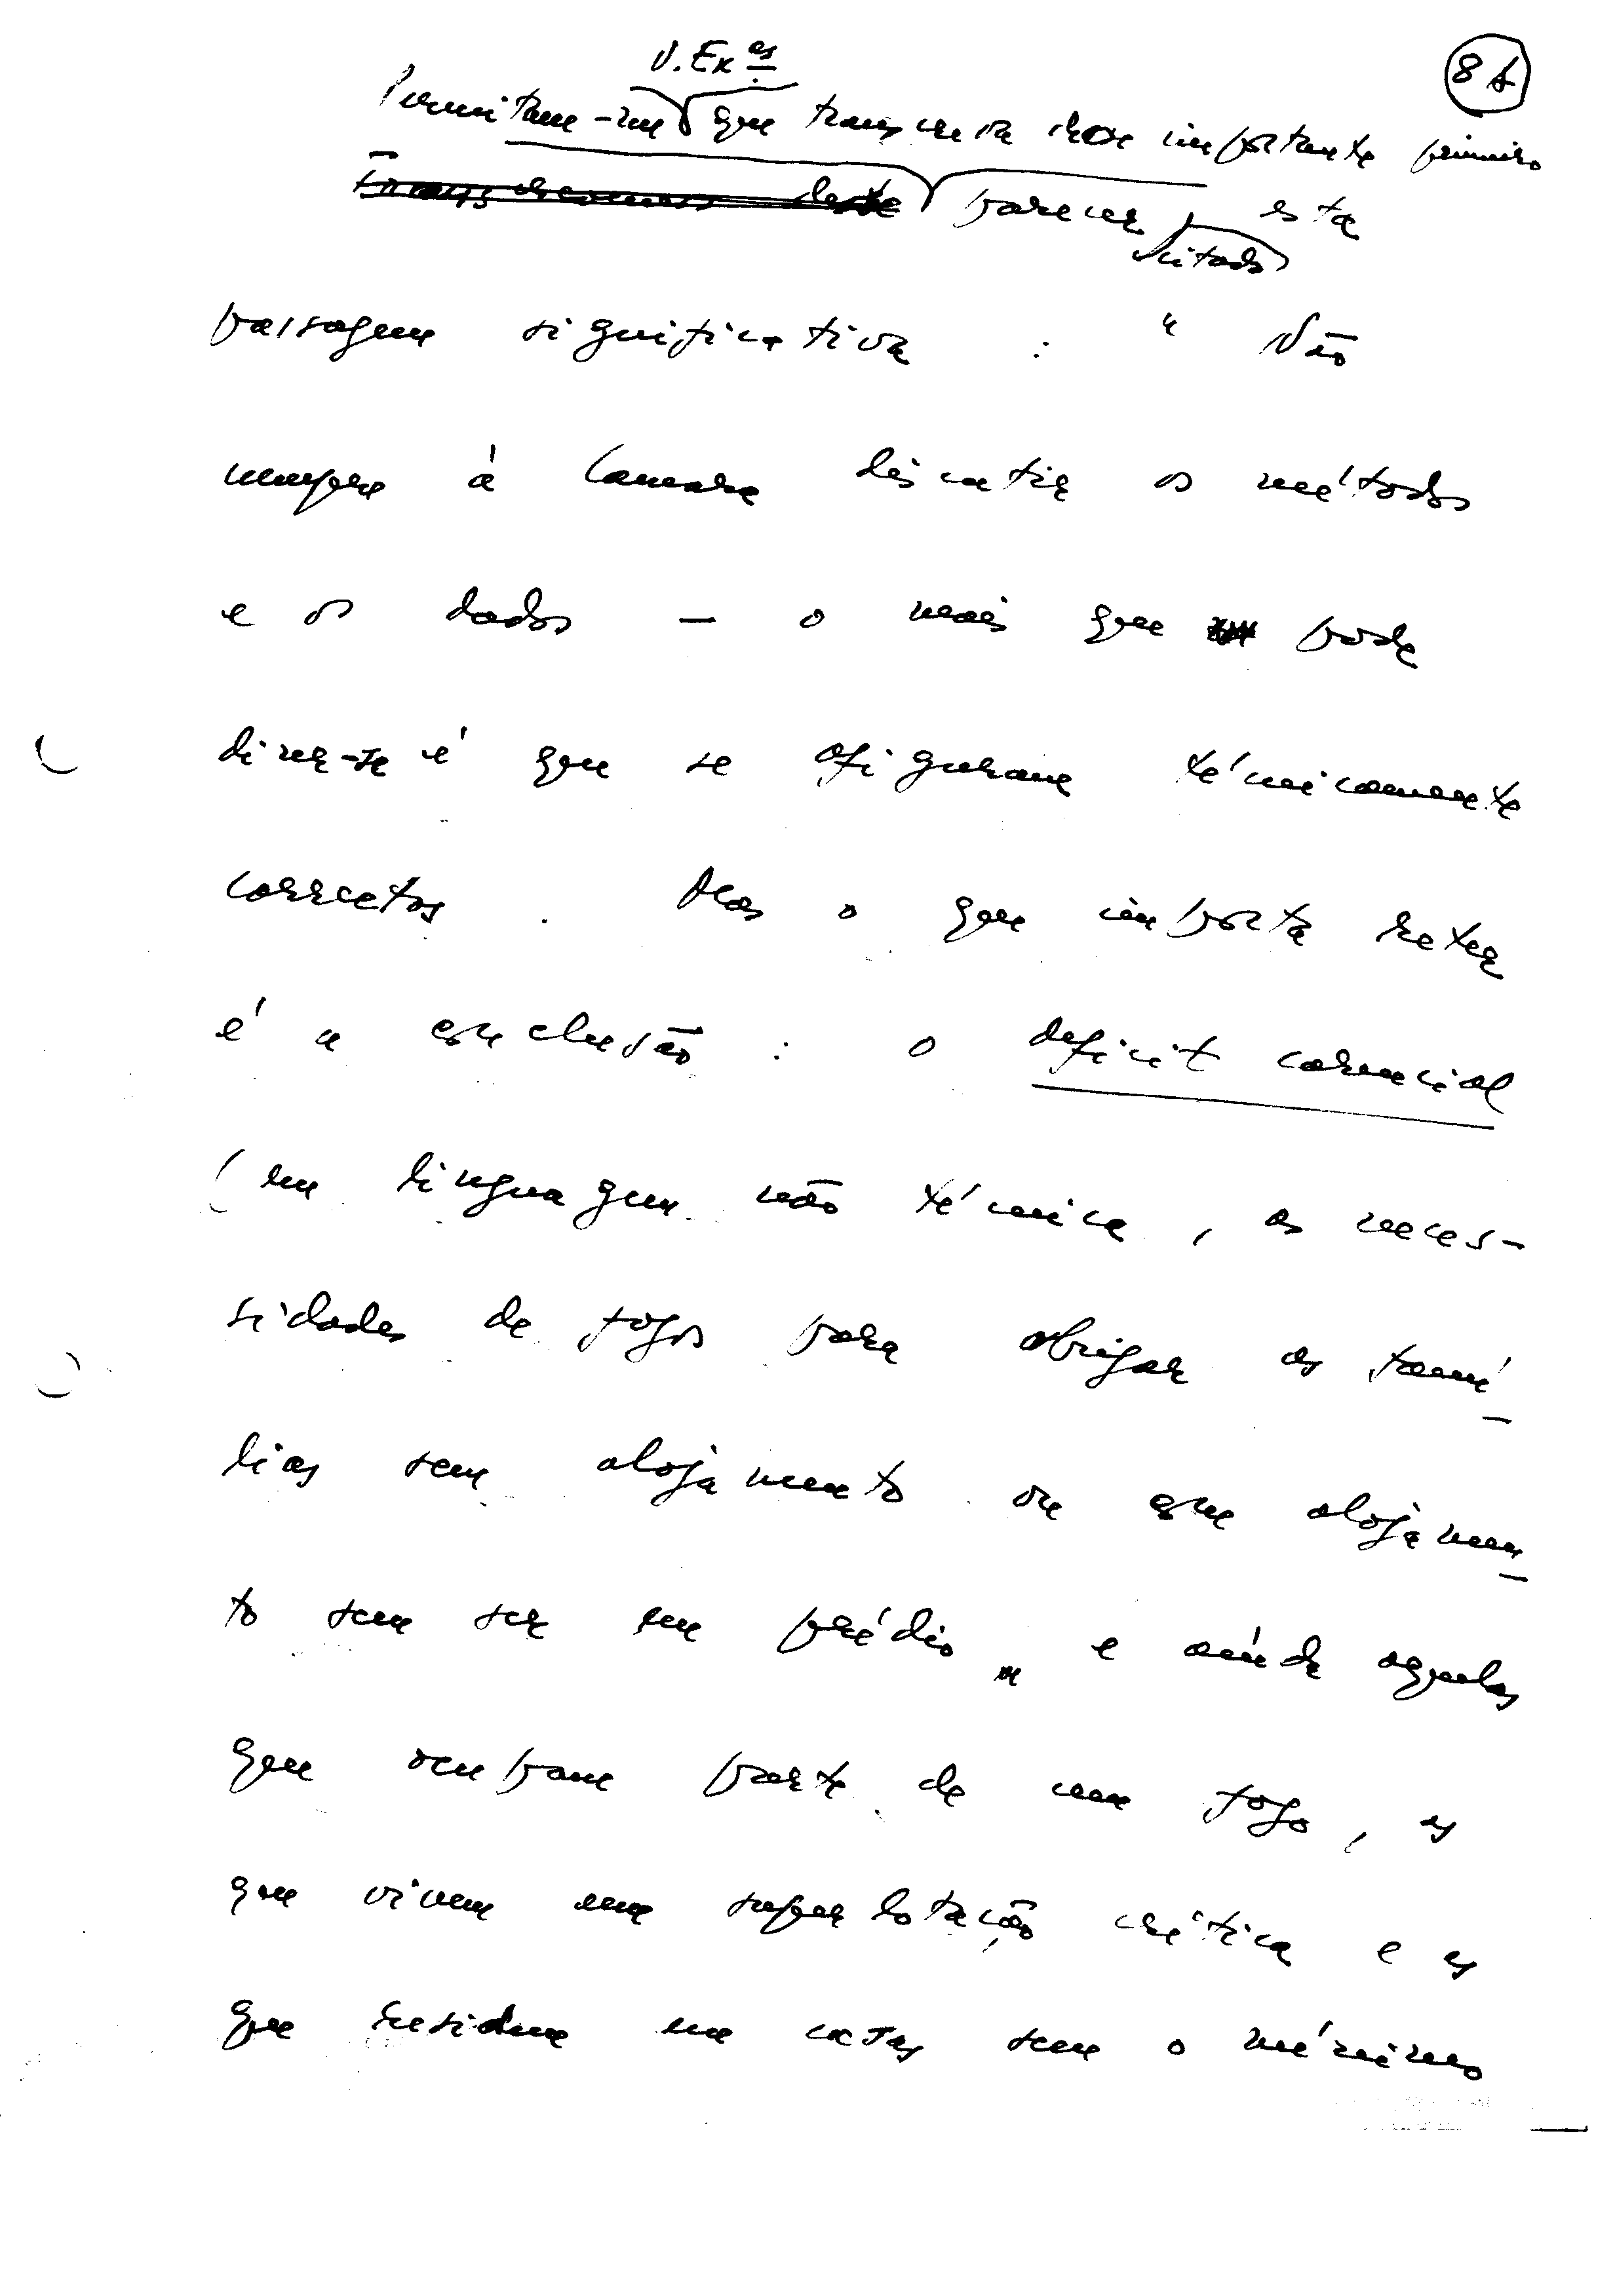 8 A
V. Ex.as
Permitam-me que transcreva desse importante primeiro
Transcrevemos deste parecer, esta
citado
passagem significativa : " Não
cumpre à Camara discutir os métodos
e os dados — o mais que pode
dizer-se é que se afiguram técnicamente
correctos. Mas o que importa reter
é a conclusão : o deficit carencial
(em linguagem não técnica, as neces-
sidades de fogos para abrigar as famí-
lias sem alojamento ou com alojamen-
to sem ser em prédio, e ainda aquelas
que ocupam parte de um fogo, as
que vivem em superlotação crítica e as
que residem em casas sem o mínimo